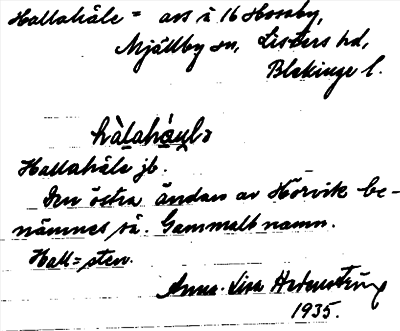 Hallahåle = avs i 16 Hosaby,
Mjällby sn, Listers hd,
Blekinge l.
Hallahåle jb.
Den östra ändan av Hörvik be-
nämnes så. Gammalt namn.
Hall = sten.
Anna-Lisa
1935.